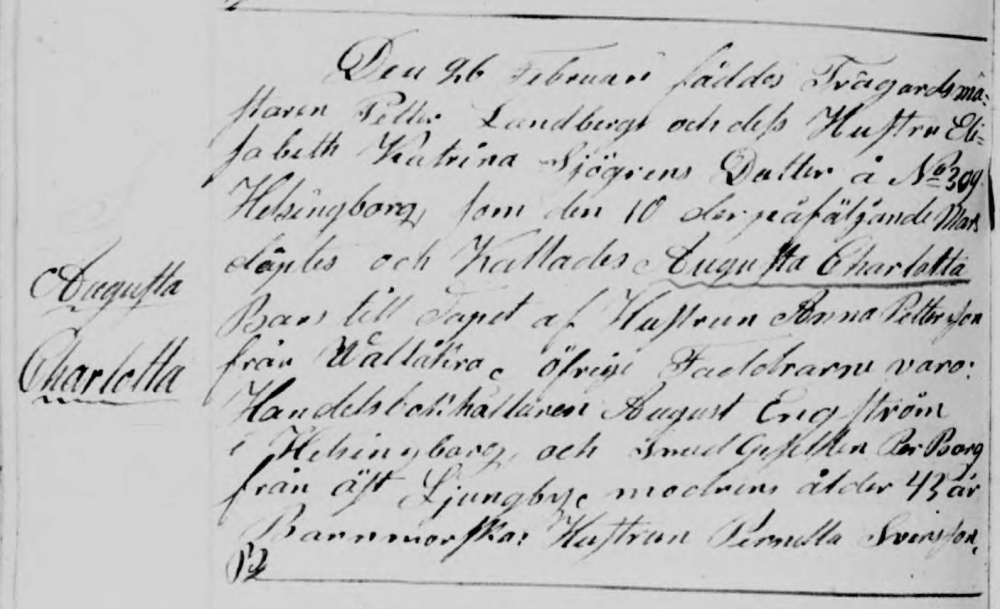 Den 26 Februari föddes Trägårdsmä-
staren Petter Landbergs och dess Hustru Eli-
sabeth Katrina Sjögrens Dotter å No 309
Helsingborg, som den 10 derpåföljande Mars
döptes och Kallades Augusta Charlotta
Augusta
Charlotta
Bars till Dopet af Hustrun Anna Pettersson
från Wallåkra, öfrige Faddrarne varo:
Handelsbokhållaren August Engström
i Helsingborg, och Smed Gesellen Per Borg
från Ljungby, modrens ålder 43 år
Barnmorska: Hustrun Pernella Svensson.